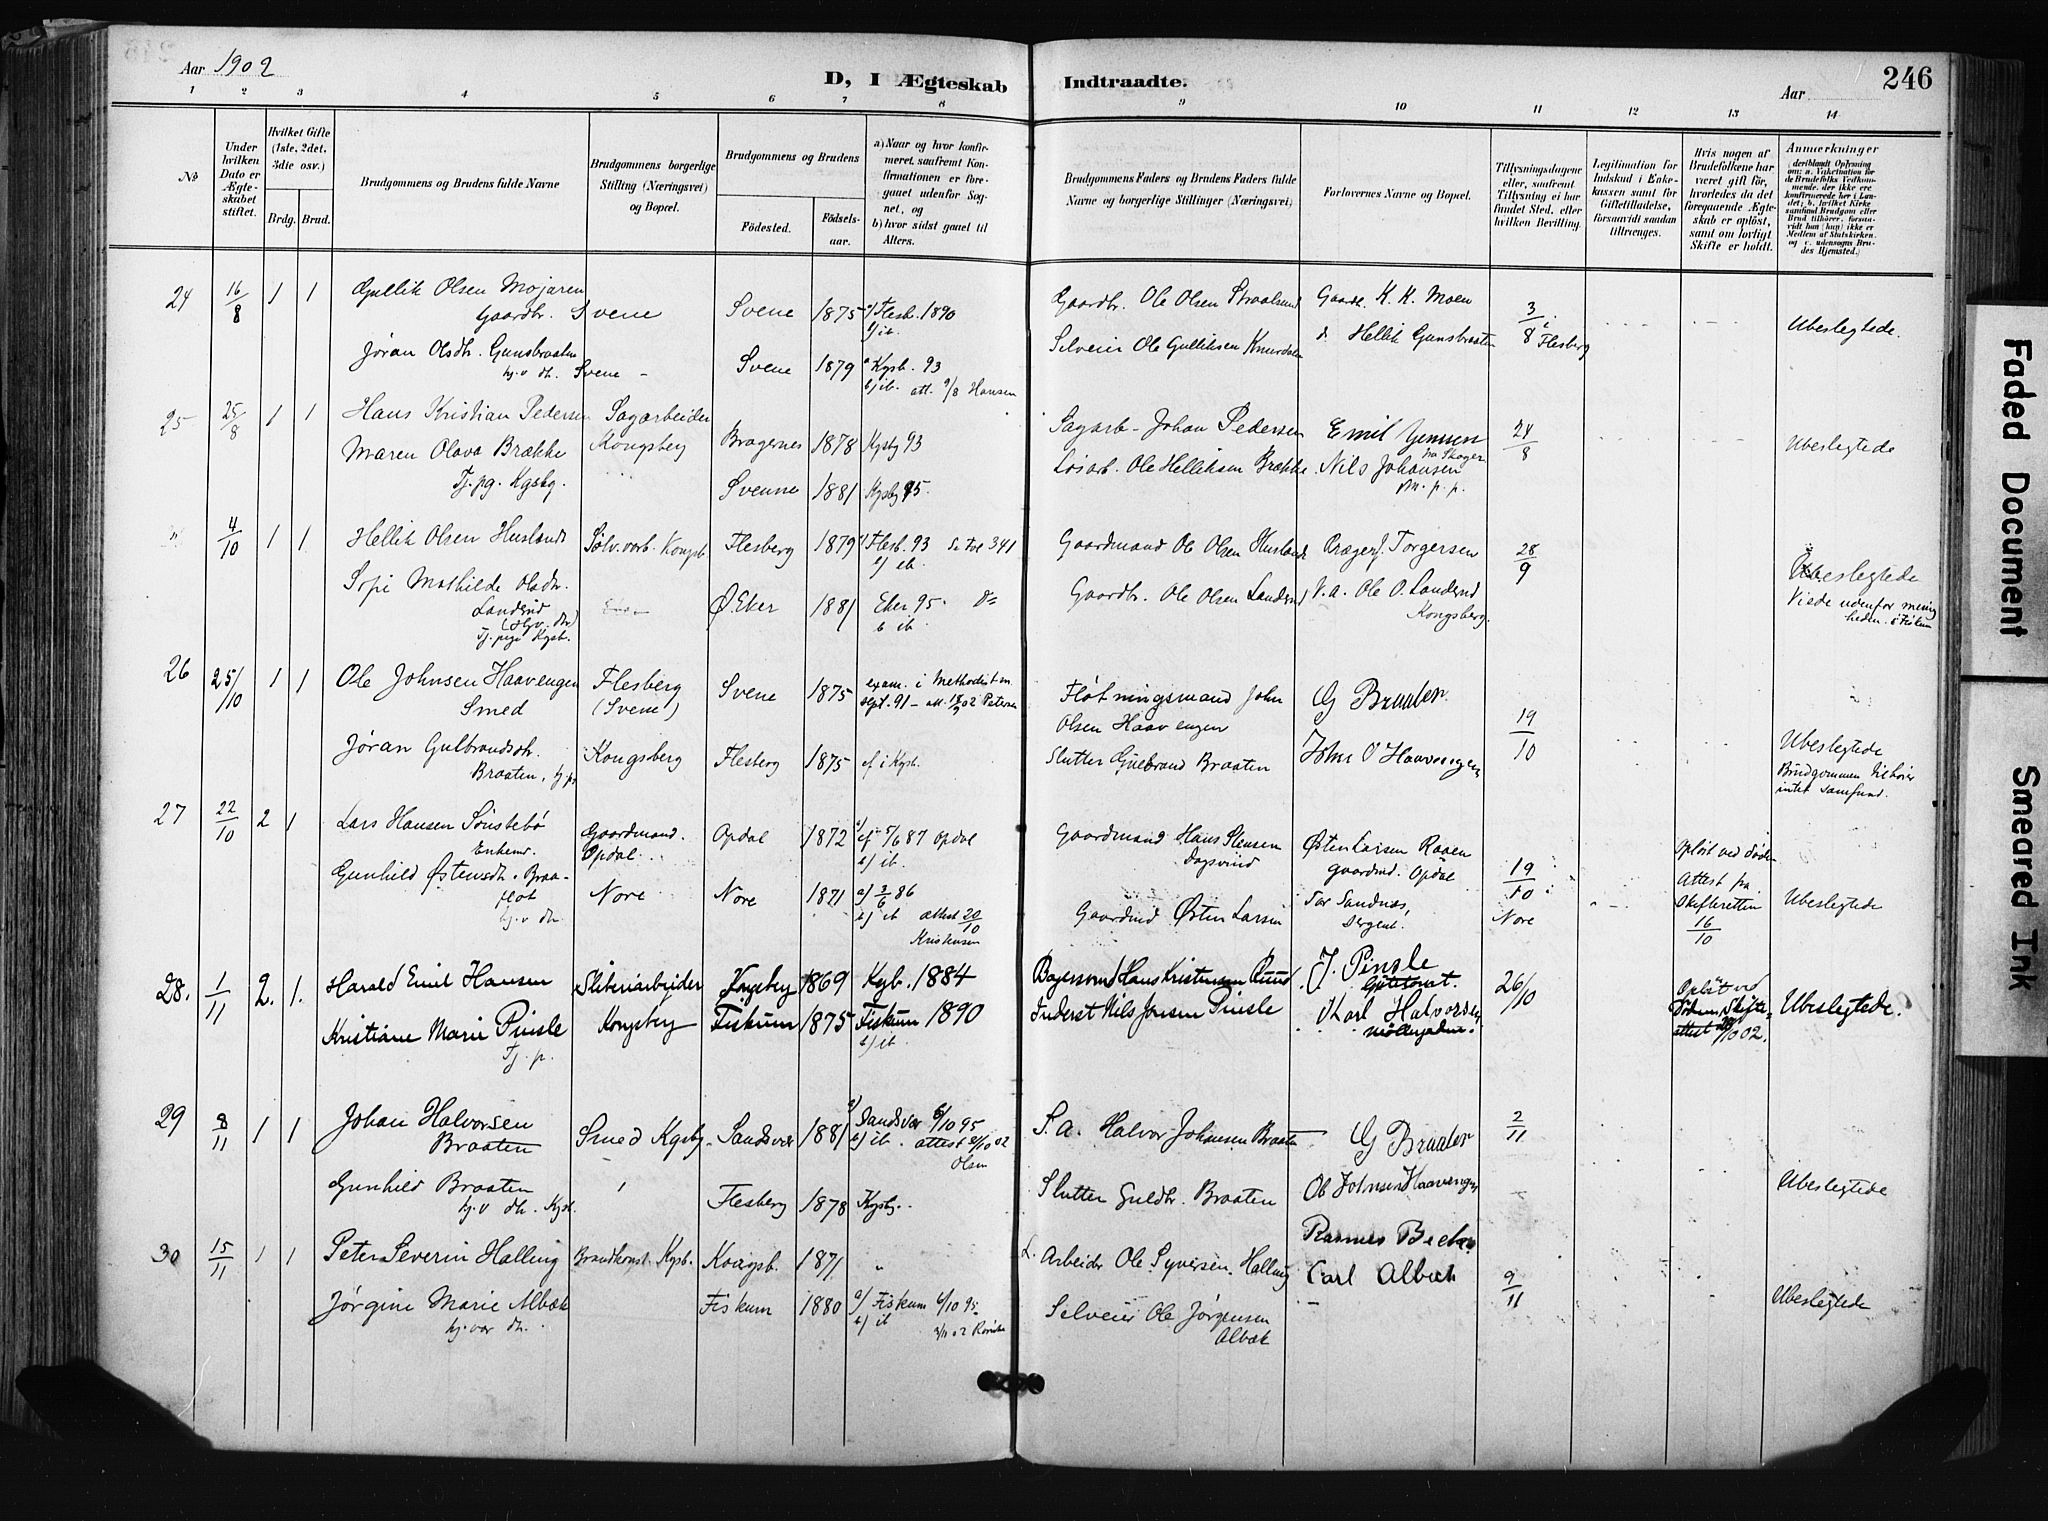 Aar 1902
D, I Ægteskab Indtraadte.
Aar
246
1 2 3 4 5 6 7 8 9 10 11 12 13 14
No
Under hvilken Dato er Ægteskabet stiftet.
Hvilket Gifte (1ste, 2det, 3die osv.)
Brdg. Brud.
Brudgommens og Brudens fulde Navne
Brudgommens borgerlige Stilling (Næringsvei) og Bopæl.
Brudgommens og Brudens
Fødested.
Fødselsaar.
a) Naar og hvor konfirmeret, saafremt Konfirmationen er foregaaet udenfor Sognet, og
b) hvor sidst gaaet til Alters.
Brudgommens Faders og Brudens Faders fulde Navne og borgerlige Stillinger (Næringsvei)
Forlovernes Navne og Bopæl.
Tillysningsdagene eller, saafremt Tillysning ei har fundet Sted, efter hvilken Bevilling.
Legitimation for Indskud i Enkekassen samt for Giftetilladelse, forsaavidt saadan tiltrænges.
Hvis nogen af Brudefolkene har været gift før, hvorledes da det foregaaende Ægteskab er opløst, samt om lovligt Skifte er holdt.
Anmerkninger
(deriblandt Oplysning om: a. Vakcination for de Brudefolks Vedkommende, der ikke ere konfirmerede her i Landet; b. hvilket Kirkesamfund Brudgom eller Brud tilhører, forsaavidt han (hun) ikke er Medlem af Statskirken og c. udensogns Brudes Hjemsted.)
24 16/8 1 1 Gullik Olsen Mojaren
Gaardbr. Svene Svene 1875 a/ Flesb. 1890
b/ ib.
Gaardbr. Ole Olsen
Gaardb. K. K. Moen
3/8 i Flesberg
Ubeslegtede.
Jøran Olsdtr. Gunsbraaten
hj. v dtr. Svene Svene 1879 a Kgsb. 93
b/ ib. att. 9/8 Hansen
Selveier Ole Gulliksen Knurdsen
d. Hellik Gunsbraaten
25 25/8 1 1 Hans Kristian Pedersen Sagarbeider
Kongsberg Bragernes 1878 Kgsbg 93
Sagarb. Johan Pedersen
Emil Jensen
24/8
Ubeslegtede
Maren Olava Brække
Tj. pg. Kgsbg. Svenne 1881 Kgsbg 95.
Løsarb. Ole Helliksen Brække
Nils Johansen
4/10 1 1 Hellik Olsen Husland Sølv.arb. Kongsb. Flesberg 1879 Flesb. 93 Se Tvl 341
b/ ib.
Gaardmand Ole Olsen Husland
Torgersen
28/9
Ubeslegtede
Viede udenfor menigheden. i Fiskum
Sofi Mathilde Olsdtr.
Landsrud
Tj. pige Kgsb. Ø. Eker 1881 Eker 95. do
b ib.
Gaardbr. Ole Olsen Landsrud
V. a. Ole O. Landsrud
Kongsberg.
26 25/10 1 1 Ole Johnsen Haavengen
Smed Flesberg (Svene) Svene 1875 exam. i Methodistm.
sept. 91 – att. 18/9 02 Petersen
Fløtningsmand John
Olsen Haavengen
G Braaten
19/10
Ubeslegtede
Brudgommen tilhører
intet samfund.
Jøran Gulbrandsdtr.
Braaten, tj pg Kongsberg Flesberg 1875 cf i Kgsb.
Slutter Gulbrand Braaten
John O Haavengen
27 22/10 2 1 Lars Hansen Sønstebø
Enkemd. Gaardmand.
Opdal. Opdal 1872 a/ cf 5/6 87 Opdal
b/ ib.
Gaardmand Hans Stensen
Dagsvind
Østen Larsen Raaen
gaardmd. Opdal
19/10 i
Nore
Opløst ved Døden
Attest fra
Skifteretten
16/10
Ubeslegtede
Gunhild Østensdtr. Braaflot
hj. v dtr. Nore Nore 1871 a/ 3/6 86
b/ ib attest 20/10
Kristensen
Gaardmd Østen Larsen
Tor Sandnæs,
Sergent.
28. 1/11 2. 1. Harald Emil Hansen Sliberiarbeider Kongsberg 1869 Kgb. 1884
Hans Kristensen Ruud
J. Pinsle
26/10
Opløst ved
Døden, Skifte-
attest 28/10 02.
Ubeslegtede.
Kristiane Marie Pinsle
Tj. p. Kongsberg Fiskum 1875 Fiskum 1890
b/ ib
Inderst Nils Jensen Pinsle
Karl Halvorsen
29 8/11 1 1 Johan Halvorsen
Braaten Smed Kgsbg. Sandsvær 1881 a/ Sandsvær 6/10 95
b/ ib. attest 31/10 02
Olsen
S. a. Halvor Johansen Braaten
G Braaten
2/11
Ubeslegtede
Gunhild Braaten
hj. v dtr. Kgsb. Flesberg 1878 Kgsbg.
Slutter Guldbr. Braaten
Ole Johnsen Haavengen
30 15/11 1 1 Peter Severin Halling Brandkonst. Kgsb. Kongsb. 1871 "
Arbeider Ole Syversen Halling
Rasmus Becker
Carl Albæk
9/11
Ubeslegtede
Jørgine Marie Albæk
hj. var dtr. Fiskum 1880 a/ Fiskum 6/10 95
b/ ib
Selveier Ole Jørgensen
Albæk
Faded Document
Smeared Ink